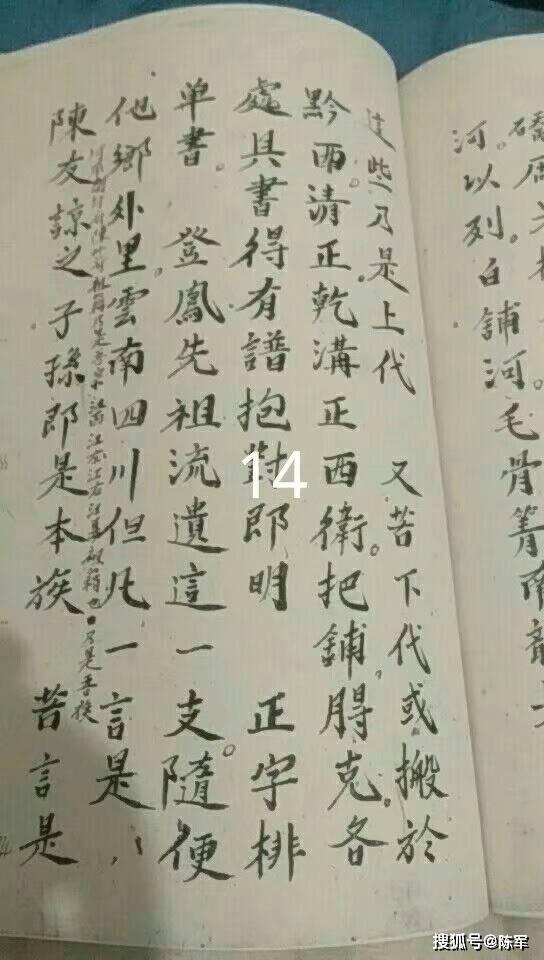 礄
河。以列。白鋪河。毛骨箐南龍
這些乃是上代 又苦下代或搬於
黔西。清正。乾溝正西衛。把鋪,脖克。各
處具書得有譜抱對郎明 正字排
单書。 登鳳先祖流遺這一支。隨便
他鄉外里。雲南四川但凡一言是
江西 江右 籍也 乃是吾族
陳友諒之子孫郎是本族 苦言是
14
搜狐号@陈军